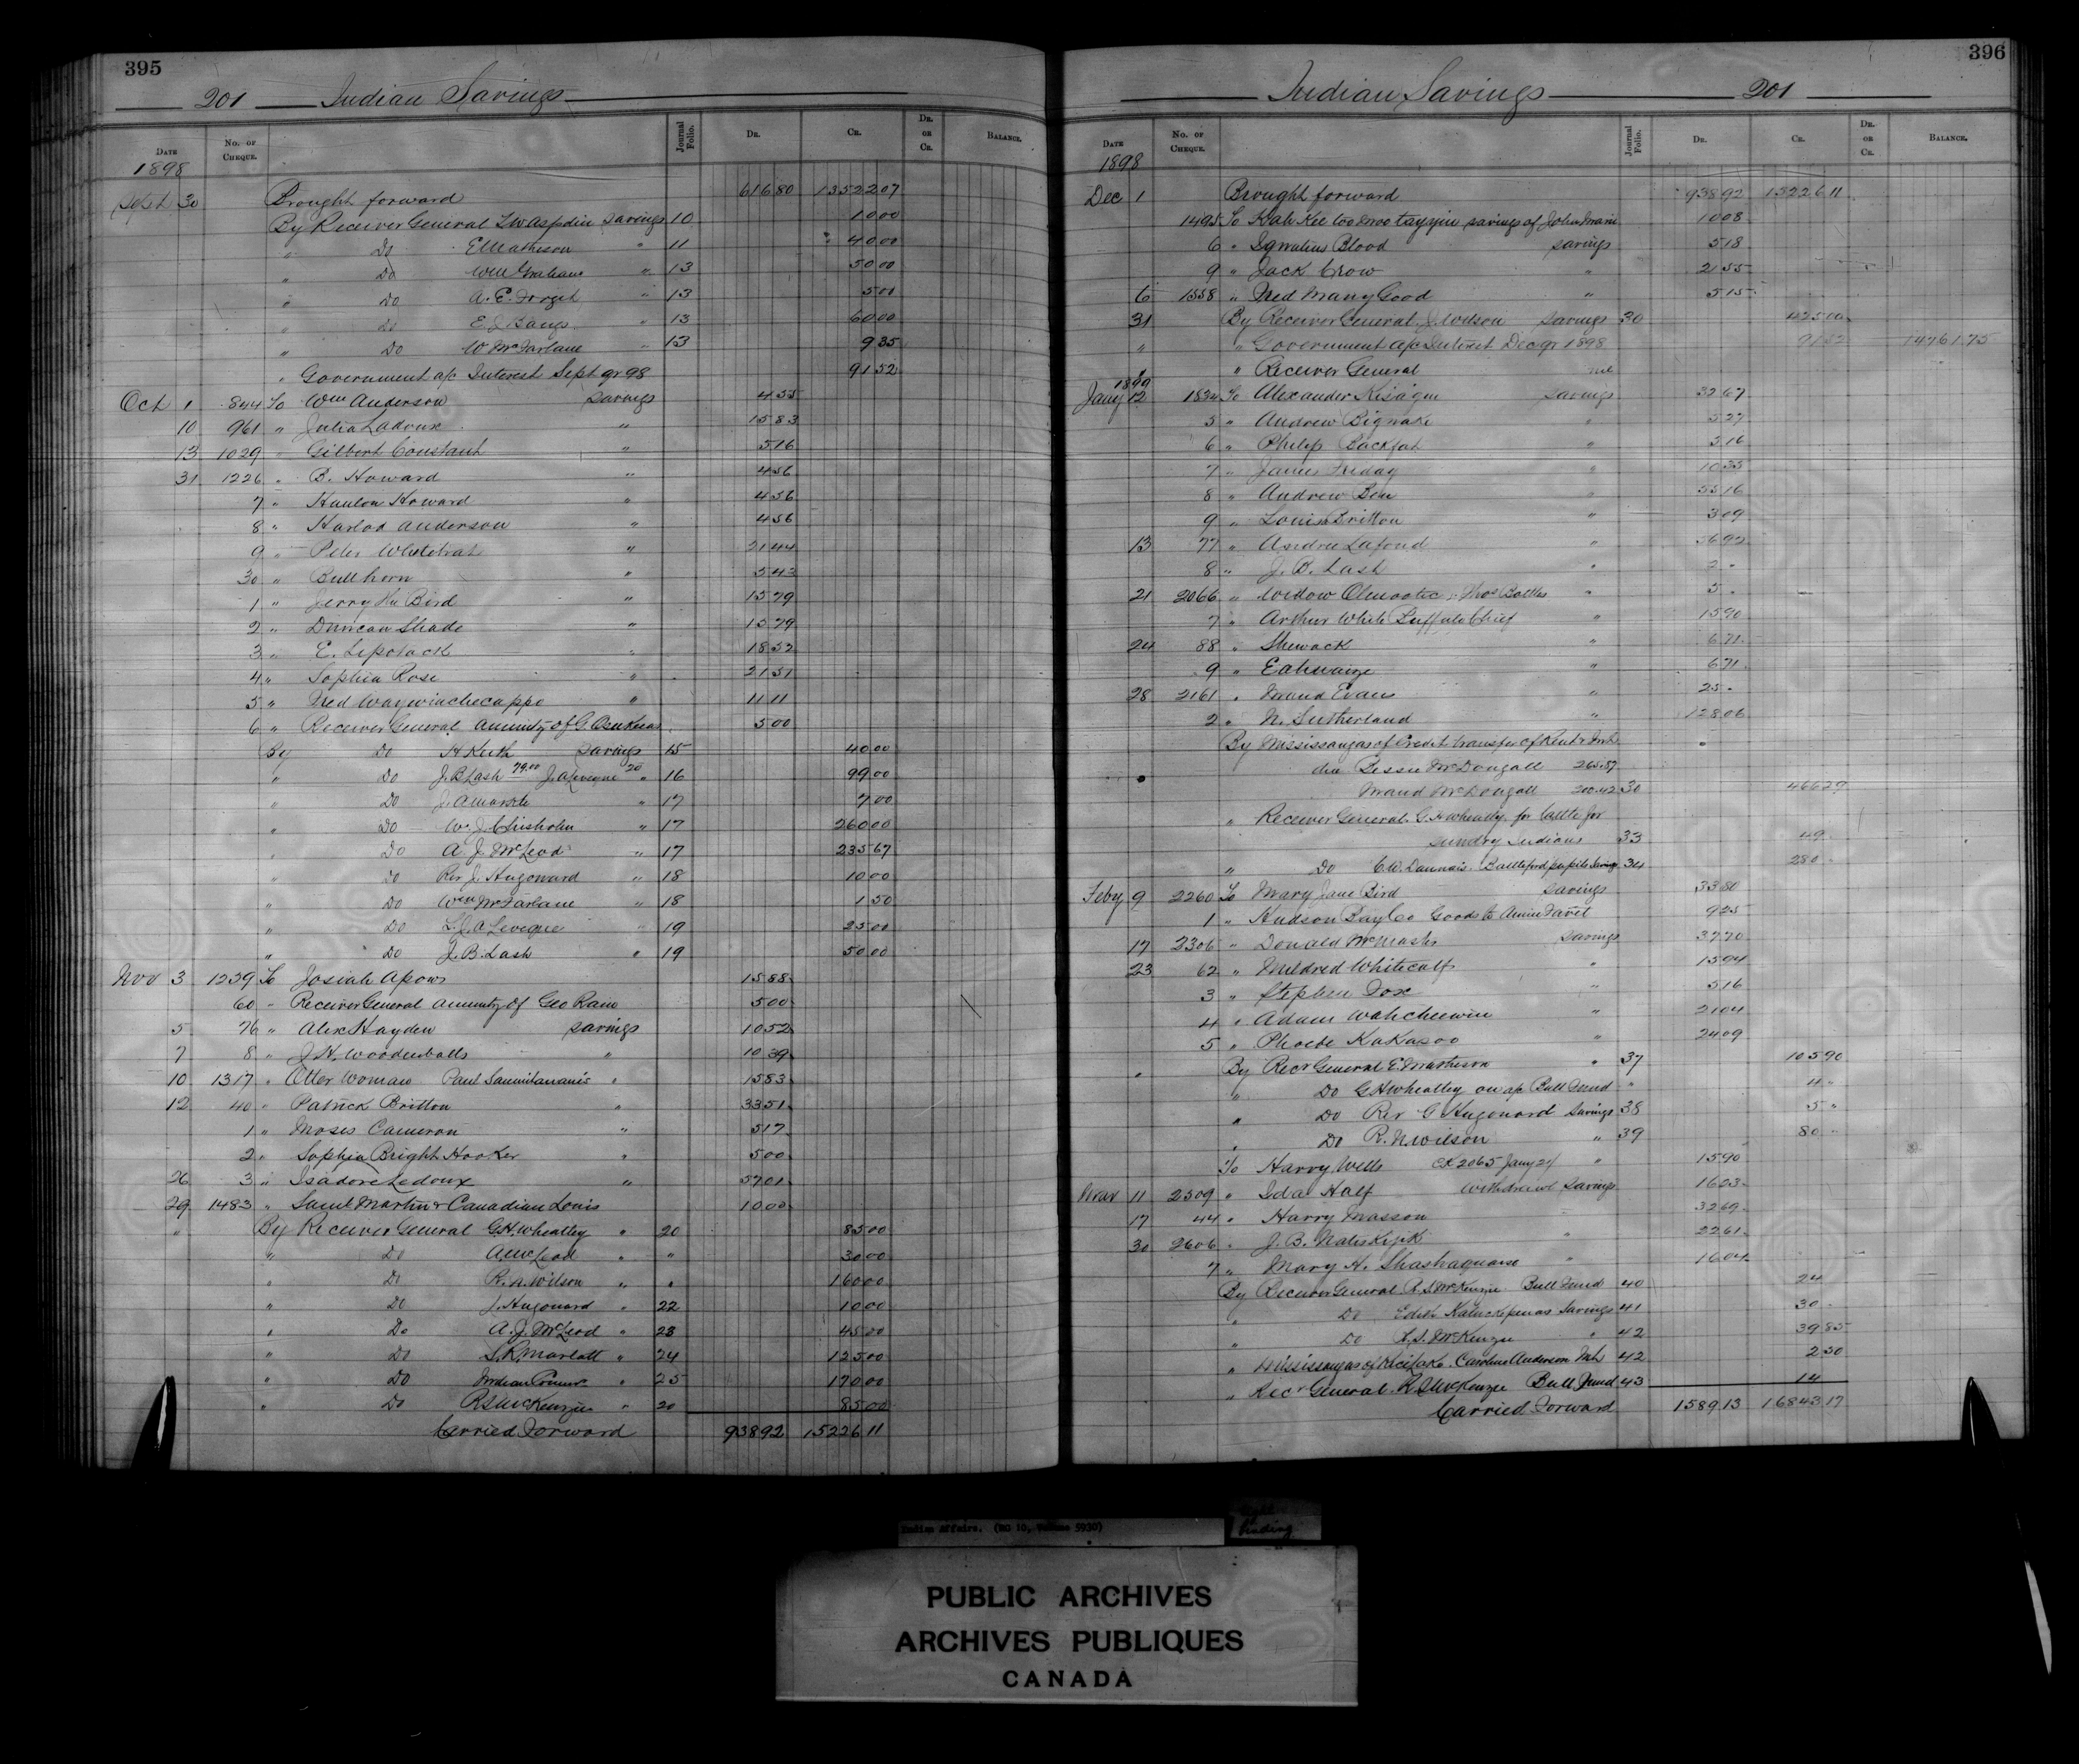 395
201 Indian Savings
Date No. of Cheque. Journal Folio. Dr. Cr. Dr. or Cr. Balance.
1898
Sept 30 Brought forward 616 80 13522 07
By Receiver General savings 10 10 00
" Do E Matheson " 11 40 00
" Do Wm Graham " 13 50 00
" Do A. E. " 13 5 01
" Do E J Bangs " 13 60 00
" Do W McFarlane " 13 9 35
" Government a/c Interest Sept qr 98 91 52
Oct 1 844 To Wm Anderson savings 4 55
10 961 " Julia Ladoux " 15 83
13 1029 " Gilbert Constant " 5 16
31 1226 " B. Howard " 4 56
7 " Howard " 4 56
8 " Harlod Anderson " 4 56
9 " Peter Whiterat " 21 44
30 " Bullhorn " 5 43
1 " Jerry the Bird " 15 79
2 " Duncan Shade " 15 79
3 " E. Lipstack " 18 52
4 " Sophia Rose " 21 51
5 " Ned Waywinchecappo " 11 11
6 " Receiver General annuity of G. 5 00
By Do H Keith savings 15 40 00
" Do J. B Lash 79.00 20 " 16 99 00
" Do J. A Markle " 17 7 00
" Do W. J. Chisholm " 17 260 00
" Do A. J. McLeod " 17 235 67
" Do Rev J. Hugonard " 18 10 00
" Do Wm McFarlane " 18 1 50
" Do L. J. A Leveque " 19 25 00
" Do J. B. Lash " 19 50 00
Nov 3 1239 To Josiah Apows 15 88
60 " Receiver General annuity of Geo Rain 5 00
5 76 " Alex Hayden savings 10 52
7 8 " J. H. Woodenballs " 10 39
10 1317 " Otter Woman Paul " 15 83
12 40 " Patrick Britton " 33 51
1 " Moses Cameron " 5 17
2 " Sophia Bright Hooker " 5 00
26 3 " Isadore Ledoux " 57 01
29 1483 " Saml Martin & Canadian Louis 10 00
" By Receiver General G. H. Wheatley " 20 85 00
" Do A. McLeod " " 30 00
" Do R. N. Wilson " " 160 00
" Do J. Hugonard " 22 10 00
" Do A. J. McLeod " 23 45 00
" Do S. R. Marlatt " 24 125 00
" Do Indian Commr " 25 170 00
" Do R S McKenzie " 20 85 00
Carried Forward 938 92 15226 11
396
Indian Savings 201
Date No. of Cheque. Journal Folio. Dr. Cr. Dr. or Cr. Balance.
1898
Dec 1 Brought forward 938 92 15226 11
1495 To savings of John 10 08
6 " Ignatius Blood savings 5 18
9 " Jack Crow " 21 55
6 1558 " Ned Many Good " 5 15
31 By Receiver General J. Wilson savings 30 425 00
" " Government a/c Interest Dec qr 1898 91 52 14761.75
" Receiver General
1899
Jany 12 1834 To Alexander Kisagin savings 32 67
5 " Andrew Bignake " 5 27
6 " Philip Backfat " 5 16
7 " James Friday " 10 35
8 " Andrew " 55 16
9 " Louisa Britton " 3 09
13 77 " Andrew Lafond "
8 " J. B. Lash " 2
21 2066 " Widow Thos Battles " 5
7 " Arthur White Buffalo Chief " 15 90
24 88 " Shewack " 6 71
9 " " 6 71
28 2161 " Maud Evans " 25
2 " N. Sutherland " 128 06
By Mississaugas of Credit transfer of
due Bessie McDougall 265.87
Maud McDougall 200.42 30 466 29
" Receiver General G H Wheatly for cattle for
sundry Indians 33 49
" Do Battleford pupils savings 34 280
Feby 9 2260 To Mary Jane Bird savings 33 80
1 " Hudson Bay Co Goods to 9 25
17 2306 " Donald savings 37 70
23 62 " Mildred Whitecalf " 15 94
3 " Stephen Fox " 5 16
4 " Adam Wahcheewin " 21 04
5 " Phoebe KaKasoo " 24 09
By Recr General E. Matheson " 37 105 90
" Do G H Wheatley on a/c Bull Fund " 4
" Do Rev G Hugonard savings 38 5
" Do R. N. Wilson " 39 80
To Harry Wells CK 2065 Jany 21 " 15 90
Mar 11 2509 " Ida Half withdrawl savings 16 03
17 44 " Harry Masson 32 69
30 2606 " J. B. " 22 61
7 " Mary H. " 16 04
By Receiver General R. S. McKenzie Bull Fund 40 24
" Do Edith savings 41 30
" Do R. S. McKenzie " 42 39 85
" Mississaugas of Carolina Anderson 42 2 50
" Recr General R S McKenzie Bull Fund 43 14
Carried Forward 1589 13 16843 17
Indian Affairs. (RG 10, Volume 5930)
binding
PUBLIC ARCHIVES
ARCHIVES PUBLIQUES
CANADA